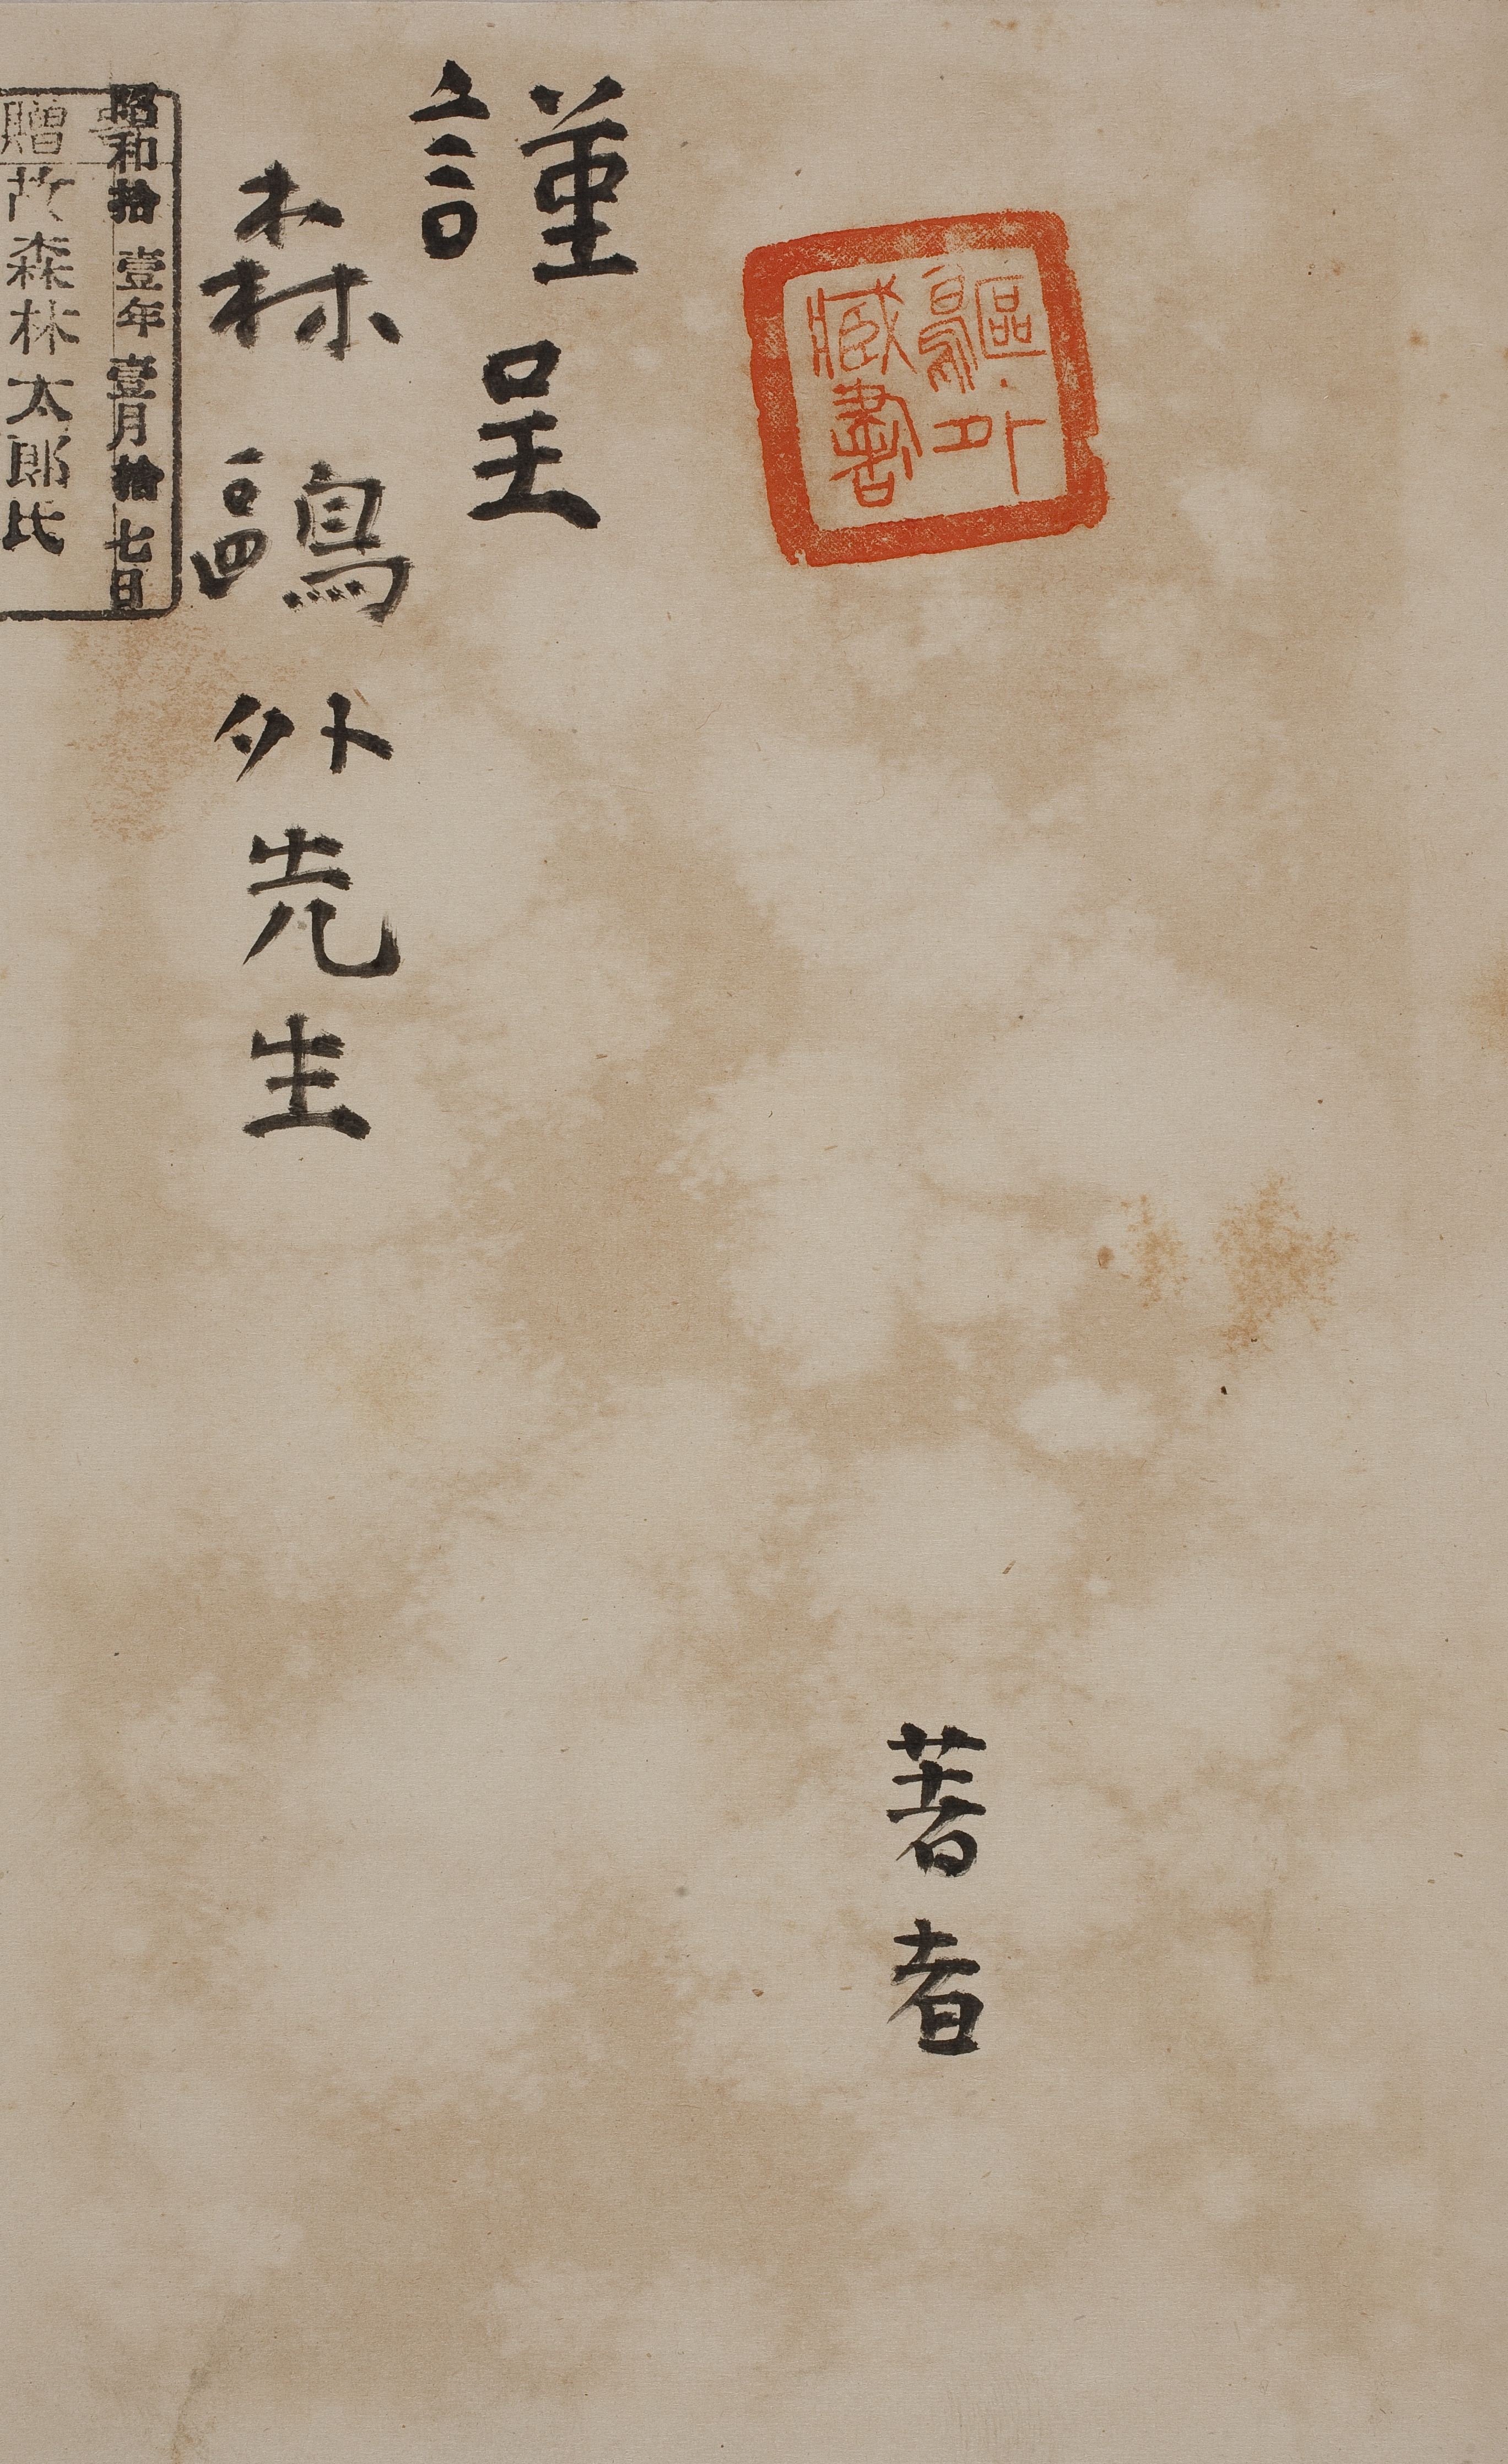 鷗外
臧書
謹呈
森鷗外先生
著者
昭和拾壹年壹月拾七日
贈故森林太郎氏